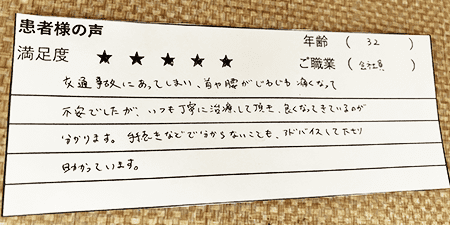 患者様の声
年齢 ( 32 )
満足度 ★ ★ ★ ★ ★
ご職業 ( 会社員 )
交通事故にあってしまい、首や腰がじわじわ痛くなって
不安でしたが、いつも丁寧に治療して頂き、良くなってきているのが
分かります。手続きなどで分からないことも、アドバイスしてたすり
助かっています。